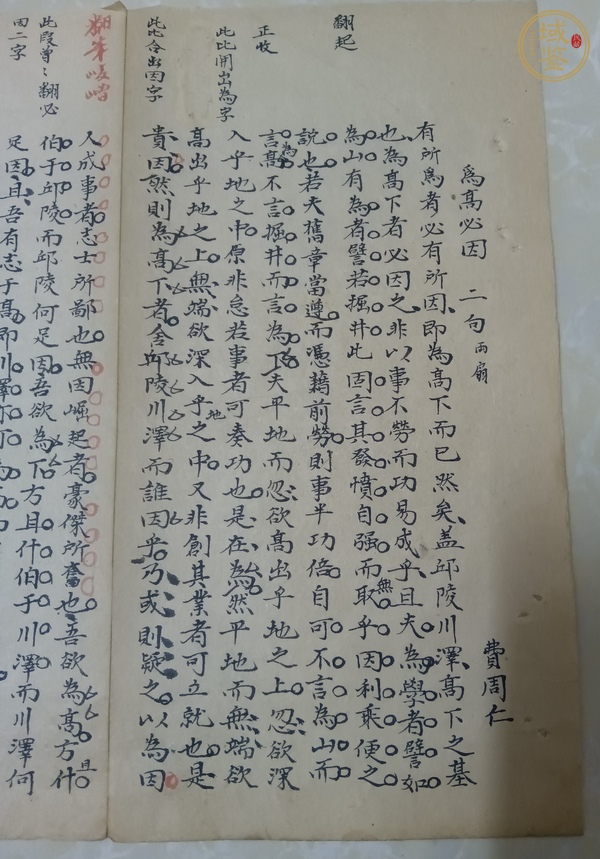 為高必因　二句　兩扇
費周仁
有所為者必有所因、即為高下而已然矣、蓋邱陵川澤、高下之基
也、為高下者必因之、非以事不勞而功易成乎、且夫為學者譬如
為山有為者譬若掘井此固言其發憤自强而無取乎因利乘便之
說也若夫舊章當遵而憑藉前勞則事半功倍自可不言為山而
言為高不言掘井而言為下夫平地而忽欲高出乎地之上忽欲深
入乎地之中原非怠若事者可奏功也是在為然平地而無端欲
高出乎地之上無端欲深入乎地之中又非創其業者可立就也是
貴因然則為高下者舍邱陵川澤而誰因乎乃或則疑之以為因
人成事者志士所鄙也無因崛起者豪傑所奮也吾欲為高方且什
伯于邱陵而邱陵何足因吾欲為下方且什伯于川澤而川澤何
足因且吾有志于高即川澤
翻起
正收
此比開出為字
此比合出因字
翻筆
此段曾翻必
因二字